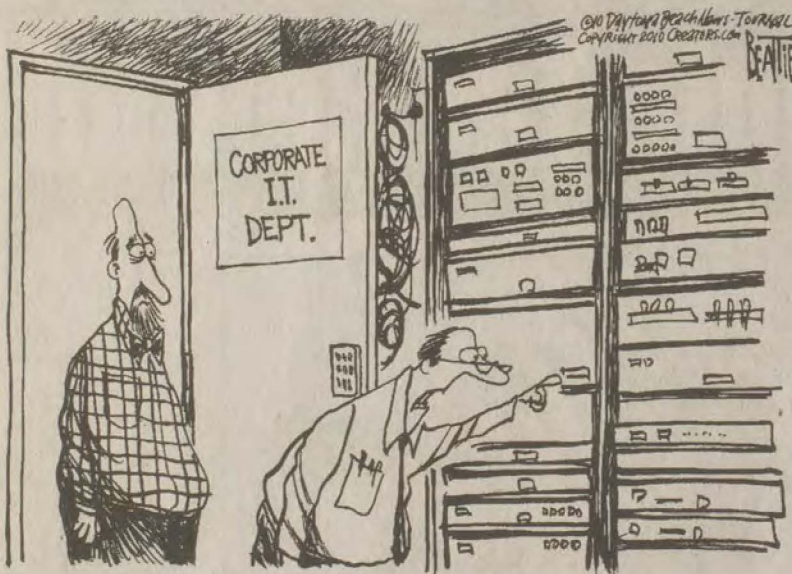 ©10 Daytona Beach News-Journal
Copyright 2010 Creators.com
BEATTIE
CORPORATE
I.T.
DEPT.